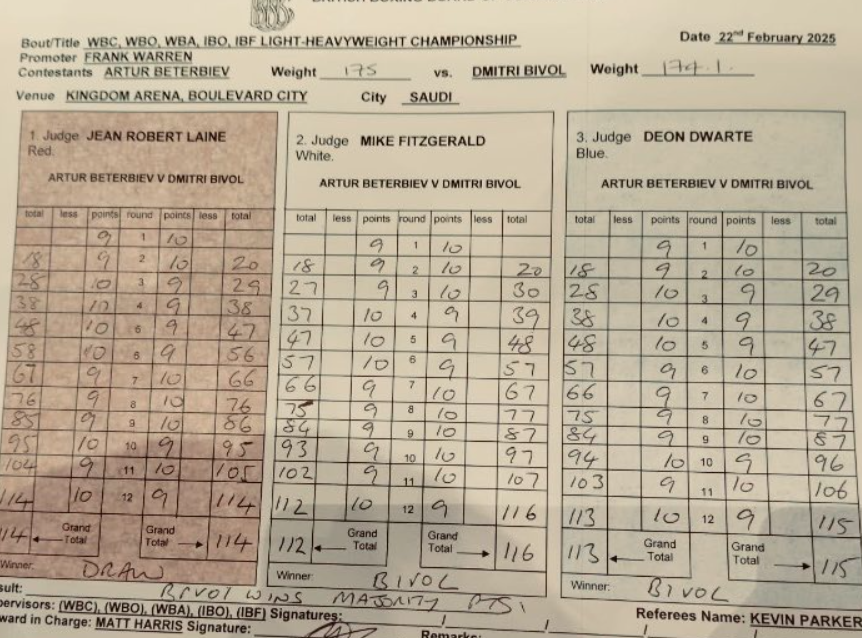 Bout/Title WBC, WBO, WBA, IBO, IBF LIGHT-HEAVYWEIGHT CHAMPIONSHIP Date 22nd February 2025
Promoter FRANK WARREN
Contestants ARTUR BETERBIEV Weight 175 vs. DMITRI BIVOL Weight 174.1.
Venue KINGDOM ARENA, BOULEVARD CITY City SAUDI
1. Judge JEAN ROBERT LAINE
Red.
ARTUR BETERBIEV V DMITRI BIVOL
total less points round points less total
9 1 10
18 9 2 10 20
28 10 3 9 29
38 10 4 9 38
48 10 5 9 47
58 10 6 9 56
67 9 7 10 66
76 9 8 10 76
85 9 9 10 86
95 10 10 9 95
104 9 11 10 105
114 10 12 9 114
114 Grand Total Grand Total 114
Winner: DRAW
2. Judge MIKE FITZGERALD
White.
ARTUR BETERBIEV V DMITRI BIVOL
total less points round points less total
9 1 10
18 9 2 10 20
27 9 3 10 30
37 10 4 9 39
47 10 5 9 48
57 10 6 9 57
66 9 7 10 67
75 9 8 10 77
84 9 9 10 87
93 9 10 10 97
102 9 11 10 107
112 10 12 9 116
112 Grand Total Grand Total 116
Winner: BIVOL
3. Judge DEON DWARTE
Blue.
ARTUR BETERBIEV V DMITRI BIVOL
total less points round points less total
9 1 10
18 9 2 10 20
28 10 3 9 29
38 10 4 9 38
48 10 5 9 47
57 9 6 10 57
66 9 7 10 67
75 9 8 10 77
84 9 9 10 87
94 10 10 9 96
103 9 11 10 106
113 10 12 9 115
113 Grand Total Grand Total 115
Winner: BIVOL
sult: BIVOL WINS MAJORITY PTS.
pervisors: (WBC), (WBO), (WBA), (IBO), (IBF) Signatures: Referees Name: KEVIN PARKER
ward in Charge: MATT HARRIS Signature: Remarks: